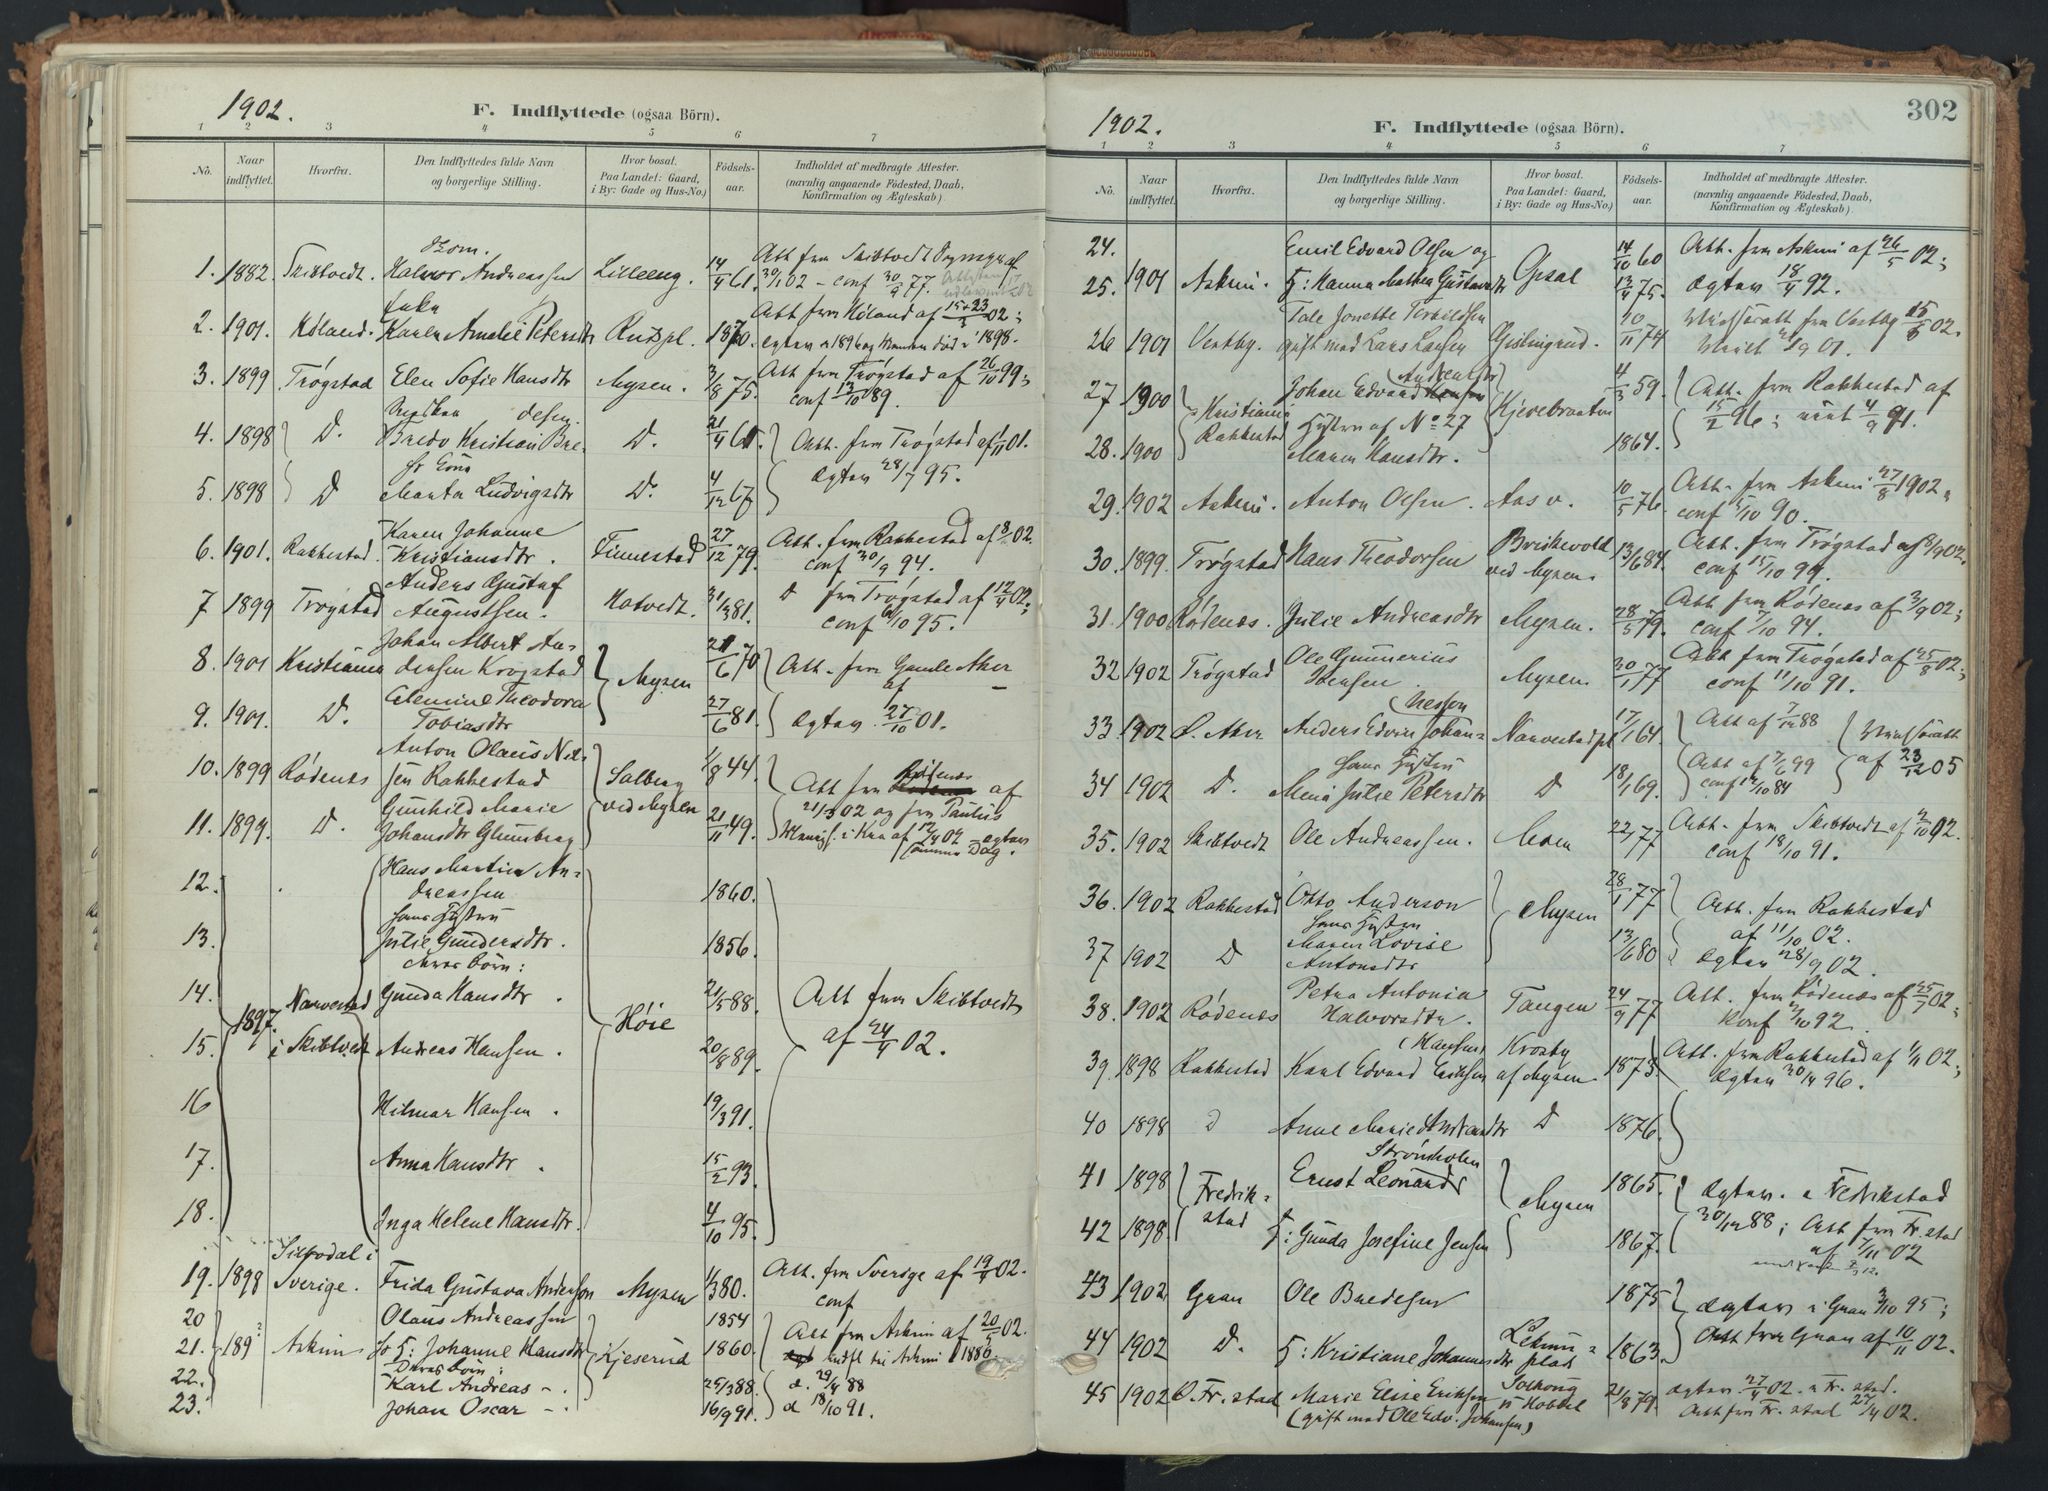 1902.
F. Indflyttede (ogsaa Börn).
1 2 3 4 5 6 7
No. Naar indflyttet. Hvorfra. Den Indflyttedes fulde Navn og borgerlige Stilling. Hvor bosat. Paa Landet: Gaard, i By: Gade og Hus-No.) Födsels-aar. Indholdet af medbragte Attester. (navnlig angaaende Födested, Daab, Konfirmation og Ægteskab)
1. 1882 Skibtvedt. Halvor Andreassen Lilleeng. 14/4 61. Att fra Skibtvedt
30/1 02 – conf 30/9 77.
Enke
2. 1901. Høland. Karen Amalie Petersdtr 1870. Att fra Høland af 15+23/3 02;
1898.
3. 1899 Trøgstad Elen Sofie Hansdtr Mysen. 3/8 75. Att fra Trøgstad af 26/10 99;
conf 13/10 89.
4. 1898 D. Bredo Kristian Bre-desen D. 21/4 61. Att. fra Trøgstad af 1/11 01.
Ægtev 28/7 95.
5. 1898 D Marta Ludvigsdtr D. 4/12 67
6. 1901. Rakkestad. Karen Johanne
Kristiansdtr. Finnestad 27/12 79. Att. fra Rakkestad af 8/1 02.
conf 30/9 94.
7 1899 Trøgstad Anders Gustaf
Augustsen. Hotvedt. 31/3 81. D fra Trøgstad af 12/4 02;
conf 6/10 95.
8. 1901 Kristiania Johan Albert An-
dersen Krogstad Mysen 21/6 70 Att. fra Gamle Aker
af –
9. 1901. D. Clemine Theodora
Tobiasdtr 27/6 81. Ægtev. 27/10 01.
10. 1899 Rødenes Anton Olaus Nil-
sen Rakkestad Solberg
ved Mysen 1/8 44. Att fra Rødenes af
21/3 02 og fra Paulus
11. 1899. D. Gunhild Marie
Johansdtr Glumberg 21/11 49. Menigh. i Kra af 12/4 02 – Ægtev
samme Dag.
12. Hans Martin An-
dreassen 1860.
Hans Hustru
13. Julie Gundersdtr. 1856.
deres børn:
14. 1897. Narvestad
i Skibtvedt Gunda Hansdtr. Høie 21/5 88. Att fra Skibtvedt
af 24/4 02.
15. Andreas Hansen. 20/8 89.
16 Hilmar Hansen. 19/3 91.
17. Anna Hansdtr. 15/2 93.
18. Inga Helene Hansdtr. 4/10 95.
19. 1898 Silbodal i
Sverige. Frida Gustava Anderson Mysen 1/3 80. Att. fra Sverige af 19/4 02.
conf
20 Olaus Andreassen 1854 Att fra Askim af 20/5 02.
21. 189? Askim H: Johanne Hansdtr Kjeserud 1860. indfl til Askim 1886.
Deres børn:
22. Karl Andreas –. 25/3 88. d. 29/4 88
23. Johan Oscar –. 16/9 91. d 18/10 91.
302
1902.
F. Indflyttede (ogsaa Börn).
1 2 3 4 5 6 7
No. Naar indflyttet. Hvorfra. Den Indflyttedes fulde Navn og borgerlige Stilling. Hvor bosat. Paa Landet: Gaard, i By: Gade og Hus-No.) Födsels-aar. Indholdet af medbragte Attester. (navnlig angaaende Födested, Daab, Konfirmation og Ægteskab)
24. Emil Edvard Olsen og 14/10 60 Att. fra Askim af 26/5 02;
25. 1901 Askim. H: Hanna Mathea Gustavsdtr Opsal 13/4 75. Ægtev 18/4 92.
26 1901 Vestby. Tale Jonette Terkildsen
gift med Lars Larsen Gislingrud. 10/11 74 fra Vestby 15/8 02.
27 1900 Kristiania
Rakkestad Johan Edvard Andreassen Kjevebraaten 4/3 59. Att. fra Rakkestad af
15/2 96; viet 4/9 91.
28. 1900 Hustru af No 27
Maren Hansdtr. 1864.
29. 1902 Askim. Anton Olsen. Aas v. 10/5 76. Att. fra Askim 27/8 1902.
conf 5/10 90.
30. 1899. Trøgstad Hans Theodorsen Briskevold
ved Mysen. 13/6 84. Att. fra Trøgstad af 8/9 02.
conf 15/10 99.
31. 1900 Rødenes. Julie Andreasdtr Mysen. 28/5 79. Att fra Rødenes af 3/9 02;
conf 7/10 94.
32 1902 Trøgstad Ole Gunnerius
Ibensen Mysen. 30/1 77 Att fra Trøgstad af 25/8 02;
conf 11/10 91.
33 1902 Ø. Aker Anders Edvin Johan-
nessen Narvestadpl 17/1 64. Att af 7/12 88
Hans Hustru af 23/12 05
34 1902 D. Mina Julie Petersdtr D 18/1 69. Att af 7/6 99
conf 12/10 84
35. 1902 Skibtvedt Ole Andreassen. Moen 22/1 77 Att. fra Skibtvedt af 2/10 02.
conf 18/10 91.
36. 1902 Rakkestad Otto Anderson Mysen 28/1 77 Att. fra Rakkestad
af 11/10 02.
Hans Hustru
37 1902 D Maren Lovise
Antonsdtr 13/6 80 Ægtev 28/9 02.
38. 1902 Rødenes Petra Antonia
Halvorsdtr. Tangen 24/9 77 Att. fra Rødenæs af 25/7 02;
Konf 2/10 92.
39. 1898 Rakkestad Karl Edvard Eriksen (Hansen) Krosby
af Mysen 1873. Att. fra Rakkestad af 1/11 02;
Ægtev 30/4 96.
40 1898 D Anne Marie D 1876.
41 1898 Fredrik-
stad Ernst Leonard Strömholm Mysen 1865. Ægtev. i Fredrikstad
42 1898. H: Gunda Josefine Jensen 1867. 30/12 88; Att fra Fr.stad
af 7/11 02
43 1902 Gran Ole Bredesen 1875 Ægtev i Gran 3/10 95;
44 1902 D. H: Kristiane Johannesdtr plads 1863. Att fra Gran af 10/11 02.
45 1902 Ø. Fr.stad Marie Elise Eriksen i Hobbel 21/8 79. Ægtev. 27/4 02. i Fr. stad.
(gift med Ole Edv. Johansen) Att fra Fr. stad 27/4 02.